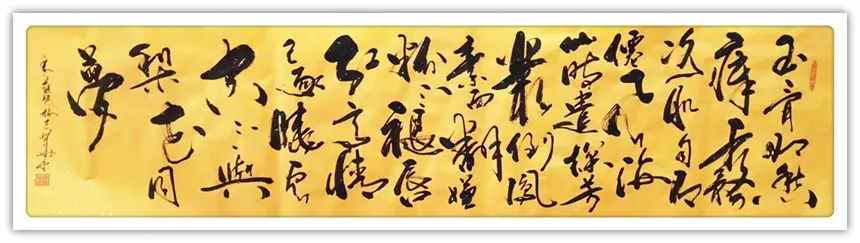 玉骨那愁
瘴雾
冰肌自有
仙风海
时遣探芳
丛倒凤
素面嫌
粉不褪唇
红高情
已逐晓云
空不与
梨花同
梦